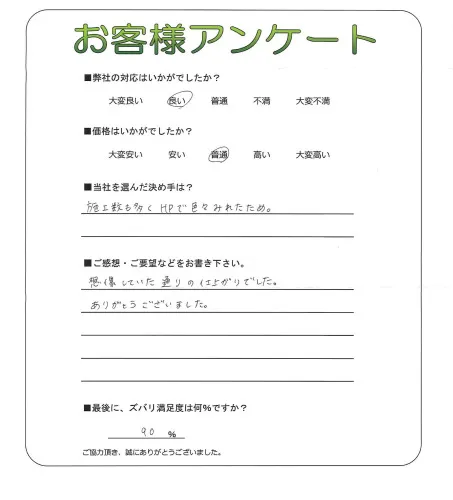 お客様アンケート
■弊社の対応はいかがでしたか？
大変良い 良い 普通 不満 大変不満
■価格はいかがでしたか？
大変安い 安い 普通 高い 大変高い
■当社を選んだ決め手は？
施工数も多くHPで色々みれたため。
■ご感想・ご要望などをお書き下さい。
想像していた通りの仕上がりでした。
ありがとうございました。
■最後に、ズバリ満足度は何%ですか？
90 %
ご協力頂き、誠にありがとうございました。